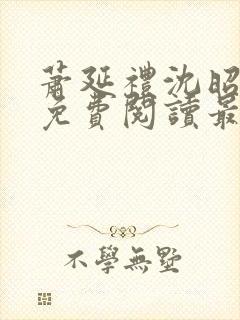 蕭延禮沈昭
免費閱讀最
不學無墅